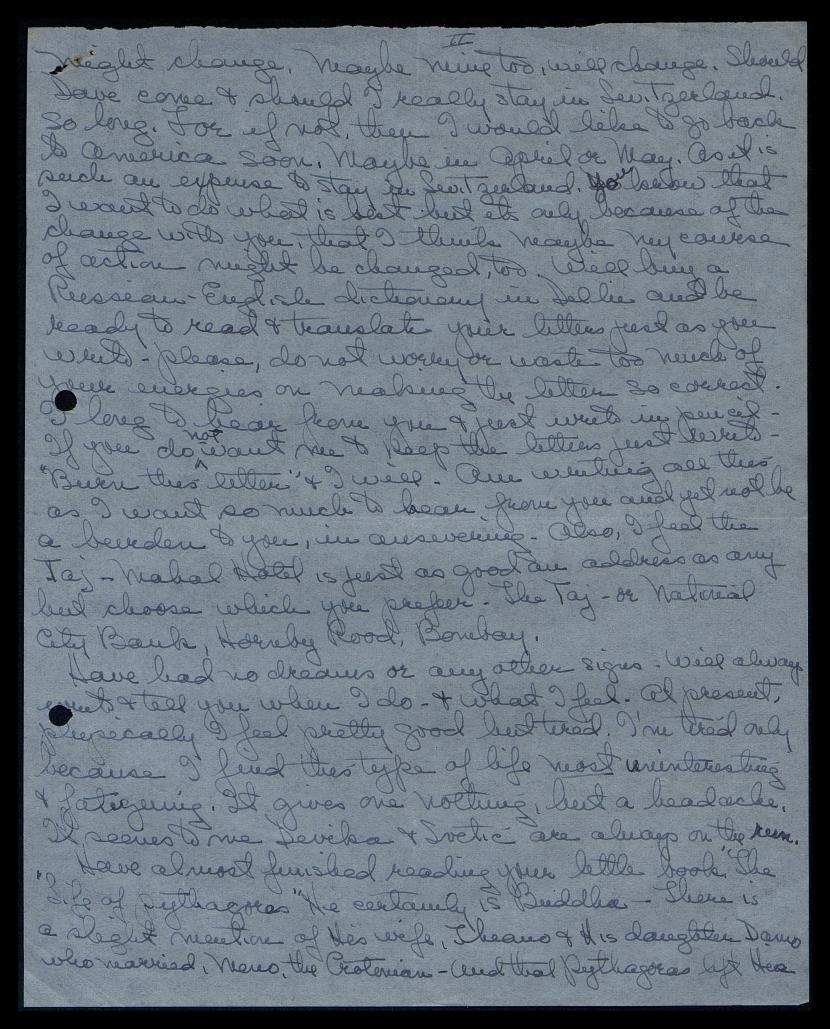 II
might change. Maybe mine too, will change. Should
Dave come & should I really stay in Switzerland.
So long. For if not, then I would like to go back
to America soon. Maybe in April or May. As it is
such an expense to stay in Switzerland. You know that
I want to do what is best but its only because of the
change with you, that I think maybe my course
of action might be changed, too. Will buy a
Russian-English dictionary in Delhi and be
ready to read & translate your letters just as you
write - please, do not worry or waste too much of
your energies on making the letter so correct.
I long to hear from you & just write in pencil -
If you do not want me to keep the letters just write -
"Burn this letter" & I will. Am writing all this
as I want so much to hear from you and yet not be
a burden to you, in answering - Also, I feel the
Taj - Mahal Hotel is just as good an address as any
but choose which you prefer - The Taj - or National
City Bank, Hornby Road, Bombay.
Have had no dreams or any other signs - Will always
write & tell you when I do - & what I feel. At present,
physically I feel pretty good but tired. I'm tired only
because I find this type of life most uninteresting
& fatiguing. It gives one nothing, but a headache.
It seems to me Devika & Svetic are always on the run.
Have almost finished reading your little book "The
"Life of Pythagoras" He certainly is Buddha - There is
a slight mention of His wife, Theano & His daughter Damo
who married, Meno, the Crotonian - and that Pythagoras left Hea